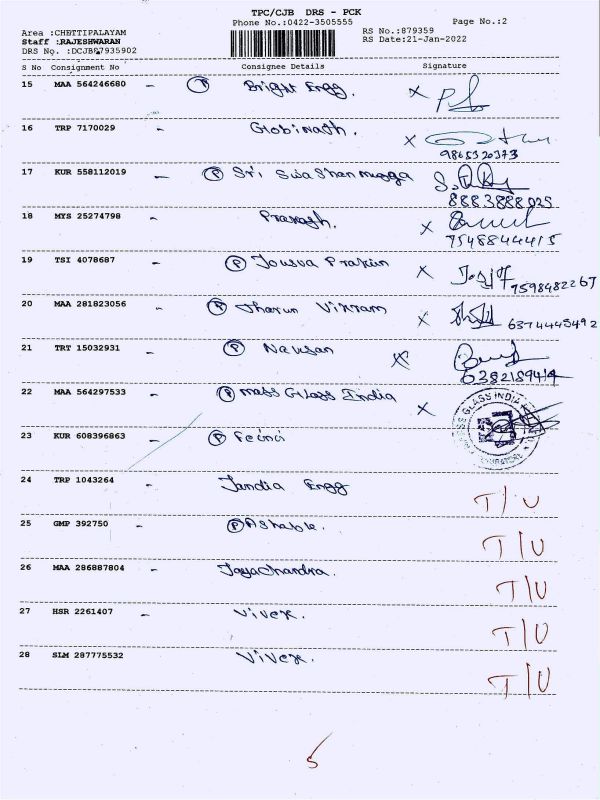 TPC/CJB DRS - PCK
Phone No.:0422-3505555
Page No.:2
Area :CHETTIPALAYAM
RS No.:879359
Staff :RAJESHWARAN
RS Date:21-Jan-2022
DRS No. :DCJB67935902
S No Consignment No Consignee Details Signature
15 MAA 564246680 - P Bright Engg. x
16 TRP 7170029 - Globinath. x
9865320373
17 KUR 558112019 - P Sri Siva Shanmuga
8883888025
18 MYS 25274798 - Prakash. x
7548844415
19 TSI 4078687 - P x 7598482267
20 MAA 281823056 - P Tharun Vikram x 6374445492
21 TRT 15032931 - P Navsan x
6382189414
22 MAA 564297533 - P Mass Glass India x
GLASS INDIA
23 KUR 608396863 - P
24 TRP 1043264 - Jandia Engg T/U
25 GMP 392750 - P T/U
26 MAA 286887804 - Jayachandra. T/U
27 HSR 2261407 - Vivek. T/U
28 SLM 287775532 Vivek. T/U
5